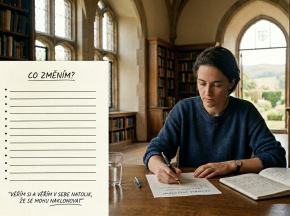 CO ZMĚNÍM?
"VĚŘÍM SI A VĚŘÍM V SEBE NATOLIK,
ŽE SE MOHU NAKLONOVAT"